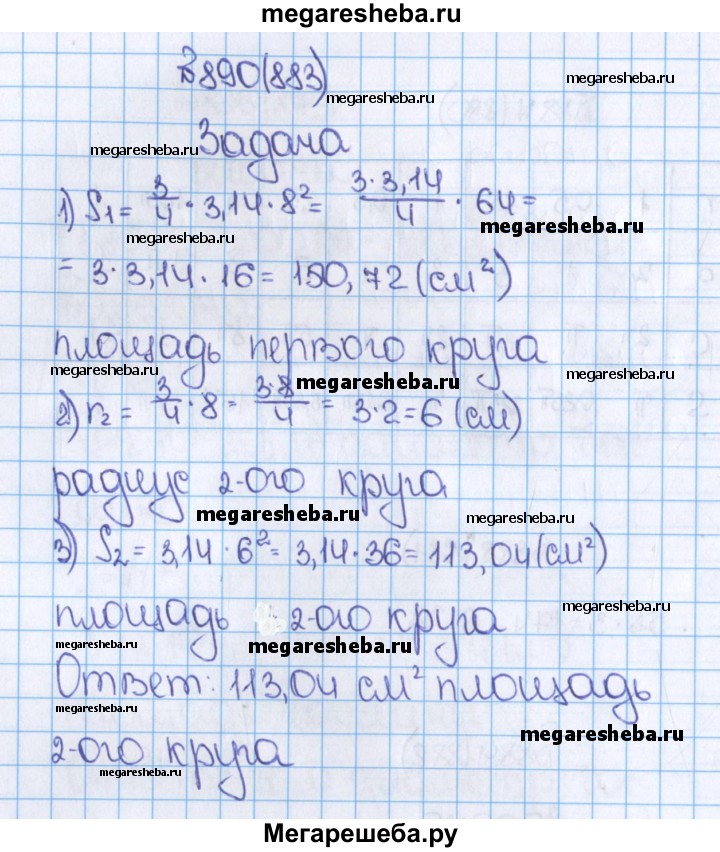 megaresheba.ru
№890(883)
megaresheba.ru
megaresheba.ru
megaresheba.ru
Задача
1) S₁ = 3/4 · 3,14 · 8² = 3·3,14/4 · 64 =
megaresheba.ru
megaresheba.ru
= 3 · 3,14 · 16 = 150,72 (см²)
площадь первого круга
megaresheba.ru
megaresheba.ru
megaresheba.ru
2) r₂ = 3/4 · 8 = 3·8/4 = 3·2 = 6 (см)
радиус 2-ого круга
megaresheba.ru
megaresheba.ru
3) S₂ = 3,14 · 6² = 3,14 · 36 = 113,04 (см²)
megaresheba.ru
площадь 2-ого круга
megaresheba.ru
megaresheba.ru
Ответ: 113,04 см² площадь
megaresheba.ru
megaresheba.ru
2-ого круга
megaresheba.ru
Мегарешеба.ру